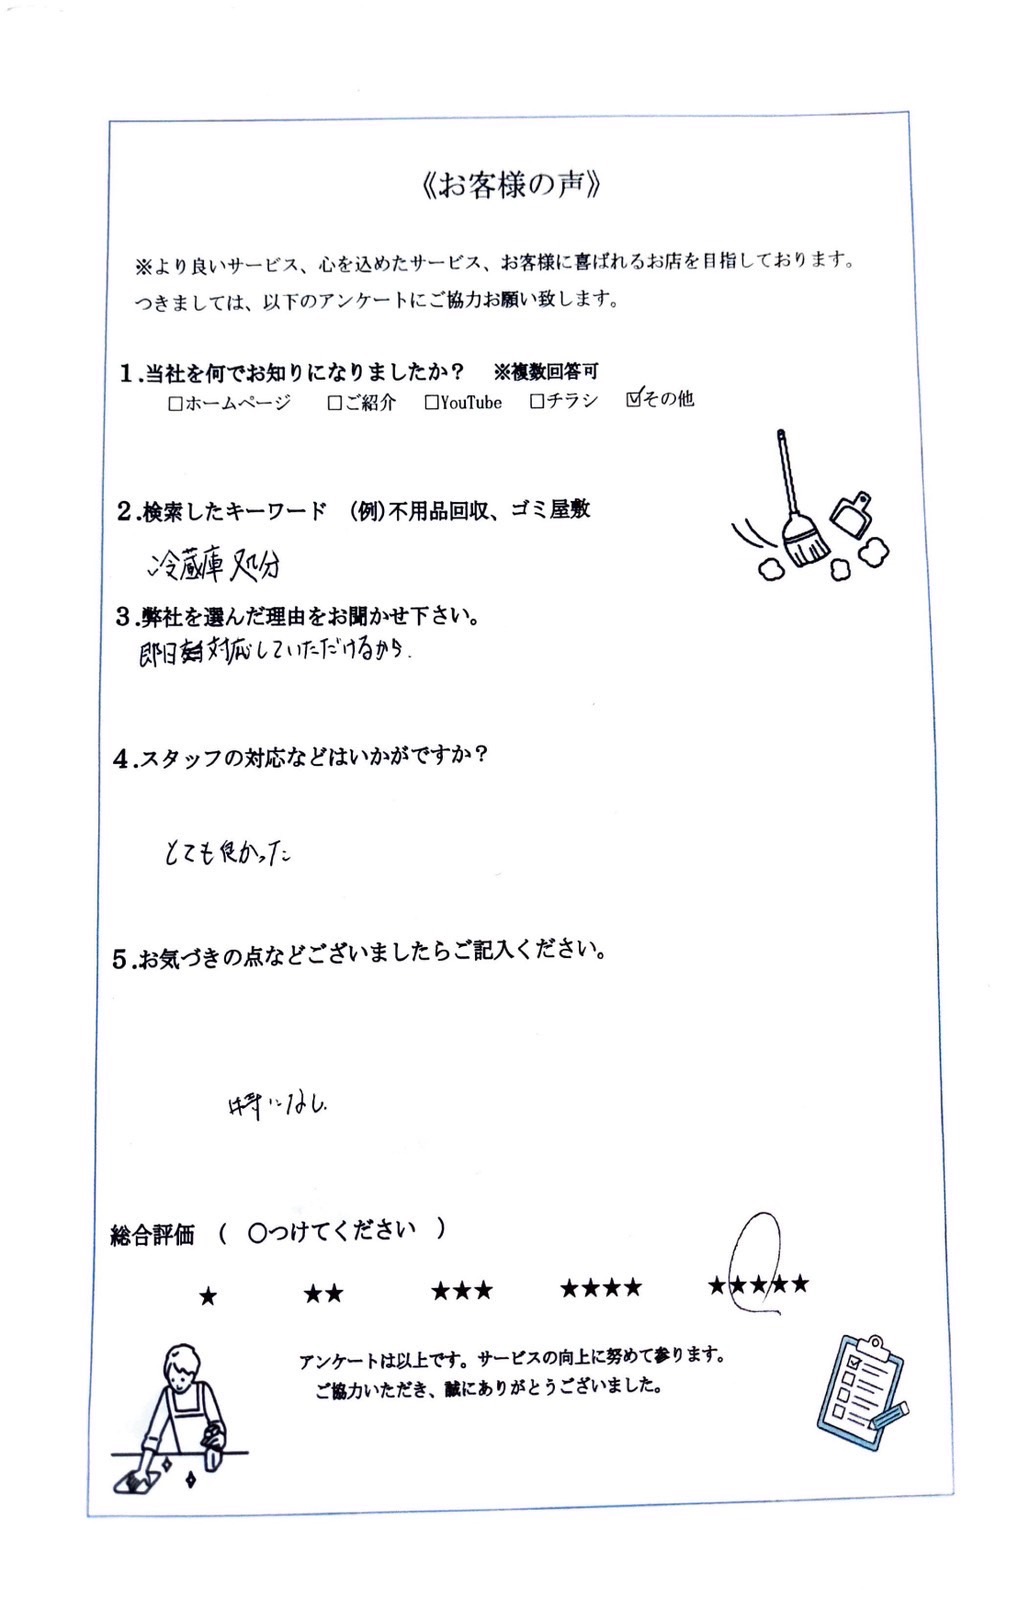 《お客様の声》
※より良いサービス、心を込めたサービス、お客様に喜ばれるお店を目指しております。
つきましては、以下のアンケートにご協力お願い致します。
1.当社を何でお知りになりましたか？ ※複数回答可
□ホームページ □ご紹介 □YouTube □チラシ ☑その他
2.検索したキーワード (例)不用品回収、ゴミ屋敷
冷蔵庫処分
3.弊社を選んだ理由をお聞かせ下さい。
即日対応していただけるから.
4.スタッフの対応などはいかがですか？
とても良かった
5.お気づきの点などございましたらご記入ください。
特になし.
総合評価 ( ○つけてください )
★ ★★ ★★★ ★★★★ ★★★★★
アンケートは以上です。サービスの向上に努めて参ります。
ご協力いただき、誠にありがとうございました。